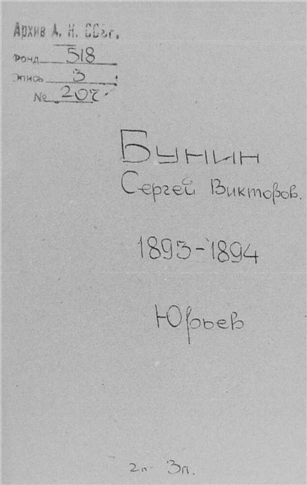 Архив А. Н. СССР.
Фонд 518
опись 3
№ 207
Бунин
Сергей Викторов.
1893-1894
Юрьев
2п- 3п.